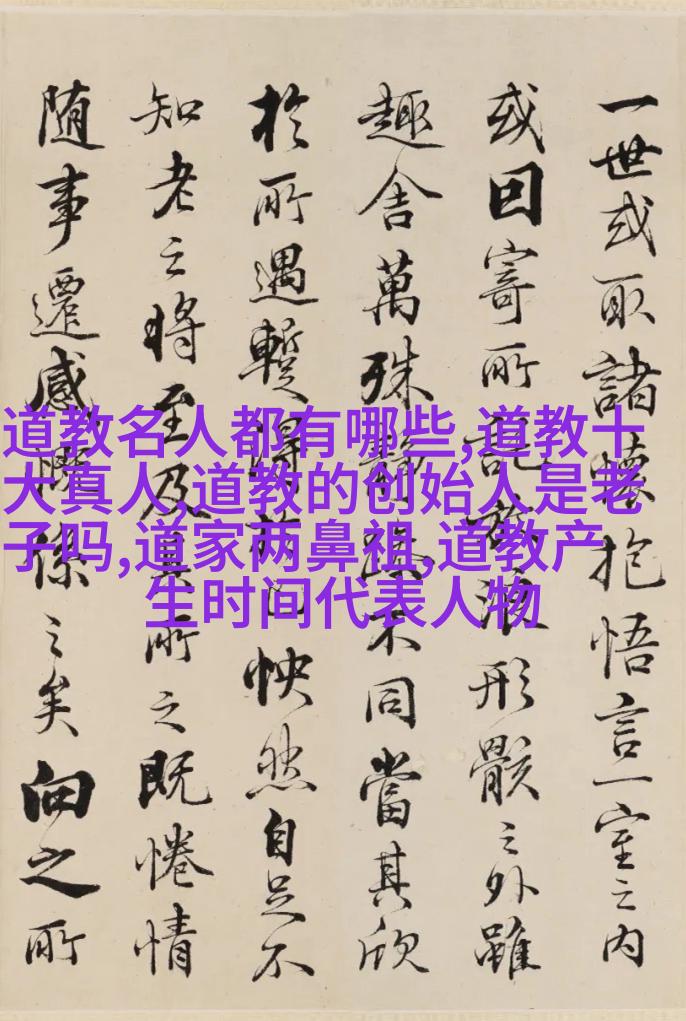 道教名人都有哪些,道教十
大真人,道教的创始人是老
子吗,道家两鼻祖,道教产
生时间代表人物
一世或取諸懷抱悟言一室之内
或因寄所託放浪形骸之外雖
趣舍萬殊靜躁不同當其欣
於所遇蹔得於己怏然自足不
知老之将至及其所之既惓情
随事遷感慨係之矣向之所